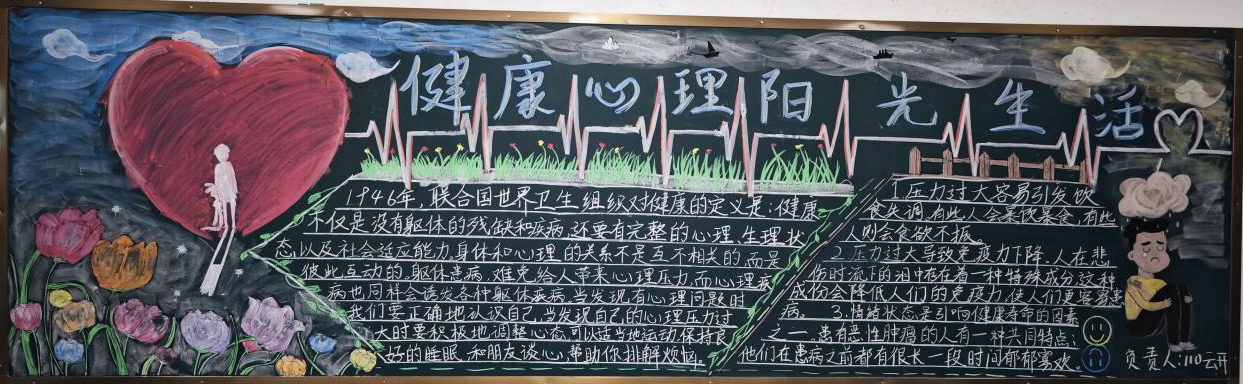 健康心理阳光生活
1946年,联合国世界卫生组织对健康的定义是:健康
不仅是没有躯体的残缺和疾病,还要有完整的心理、生理状
态,以及社会适应能力,身体和心理的关系不是互不相关的,而是
彼此互动的,躯体患病,难免给人带来心理压力,而心理疾
病也同样会诱发各种躯体疾病,当发现有心理问题时
我们要正确地认识自己,当发现自己的心理压力过
大时要积极地调整心态,可以适当地运动,保持良
好的睡眠,和朋友谈心,帮助你排解烦恼。
1.压力过大容易引发饮
食失调,有些人会暴饮暴食,有些
人则会食欲不振。
2.压力过大导致免疫力下降,人在悲
伤时流下的泪中存在着一种特殊成分,这种
成份会降低人们的免疫力,使人们更容易患
病。3.情绪状态是影响健康寿命的因素
之一,患有恶性肿瘤的人有一种共同特点:
他们在患病之前都有很长一段时间郁郁寡欢。
负责人:110云开